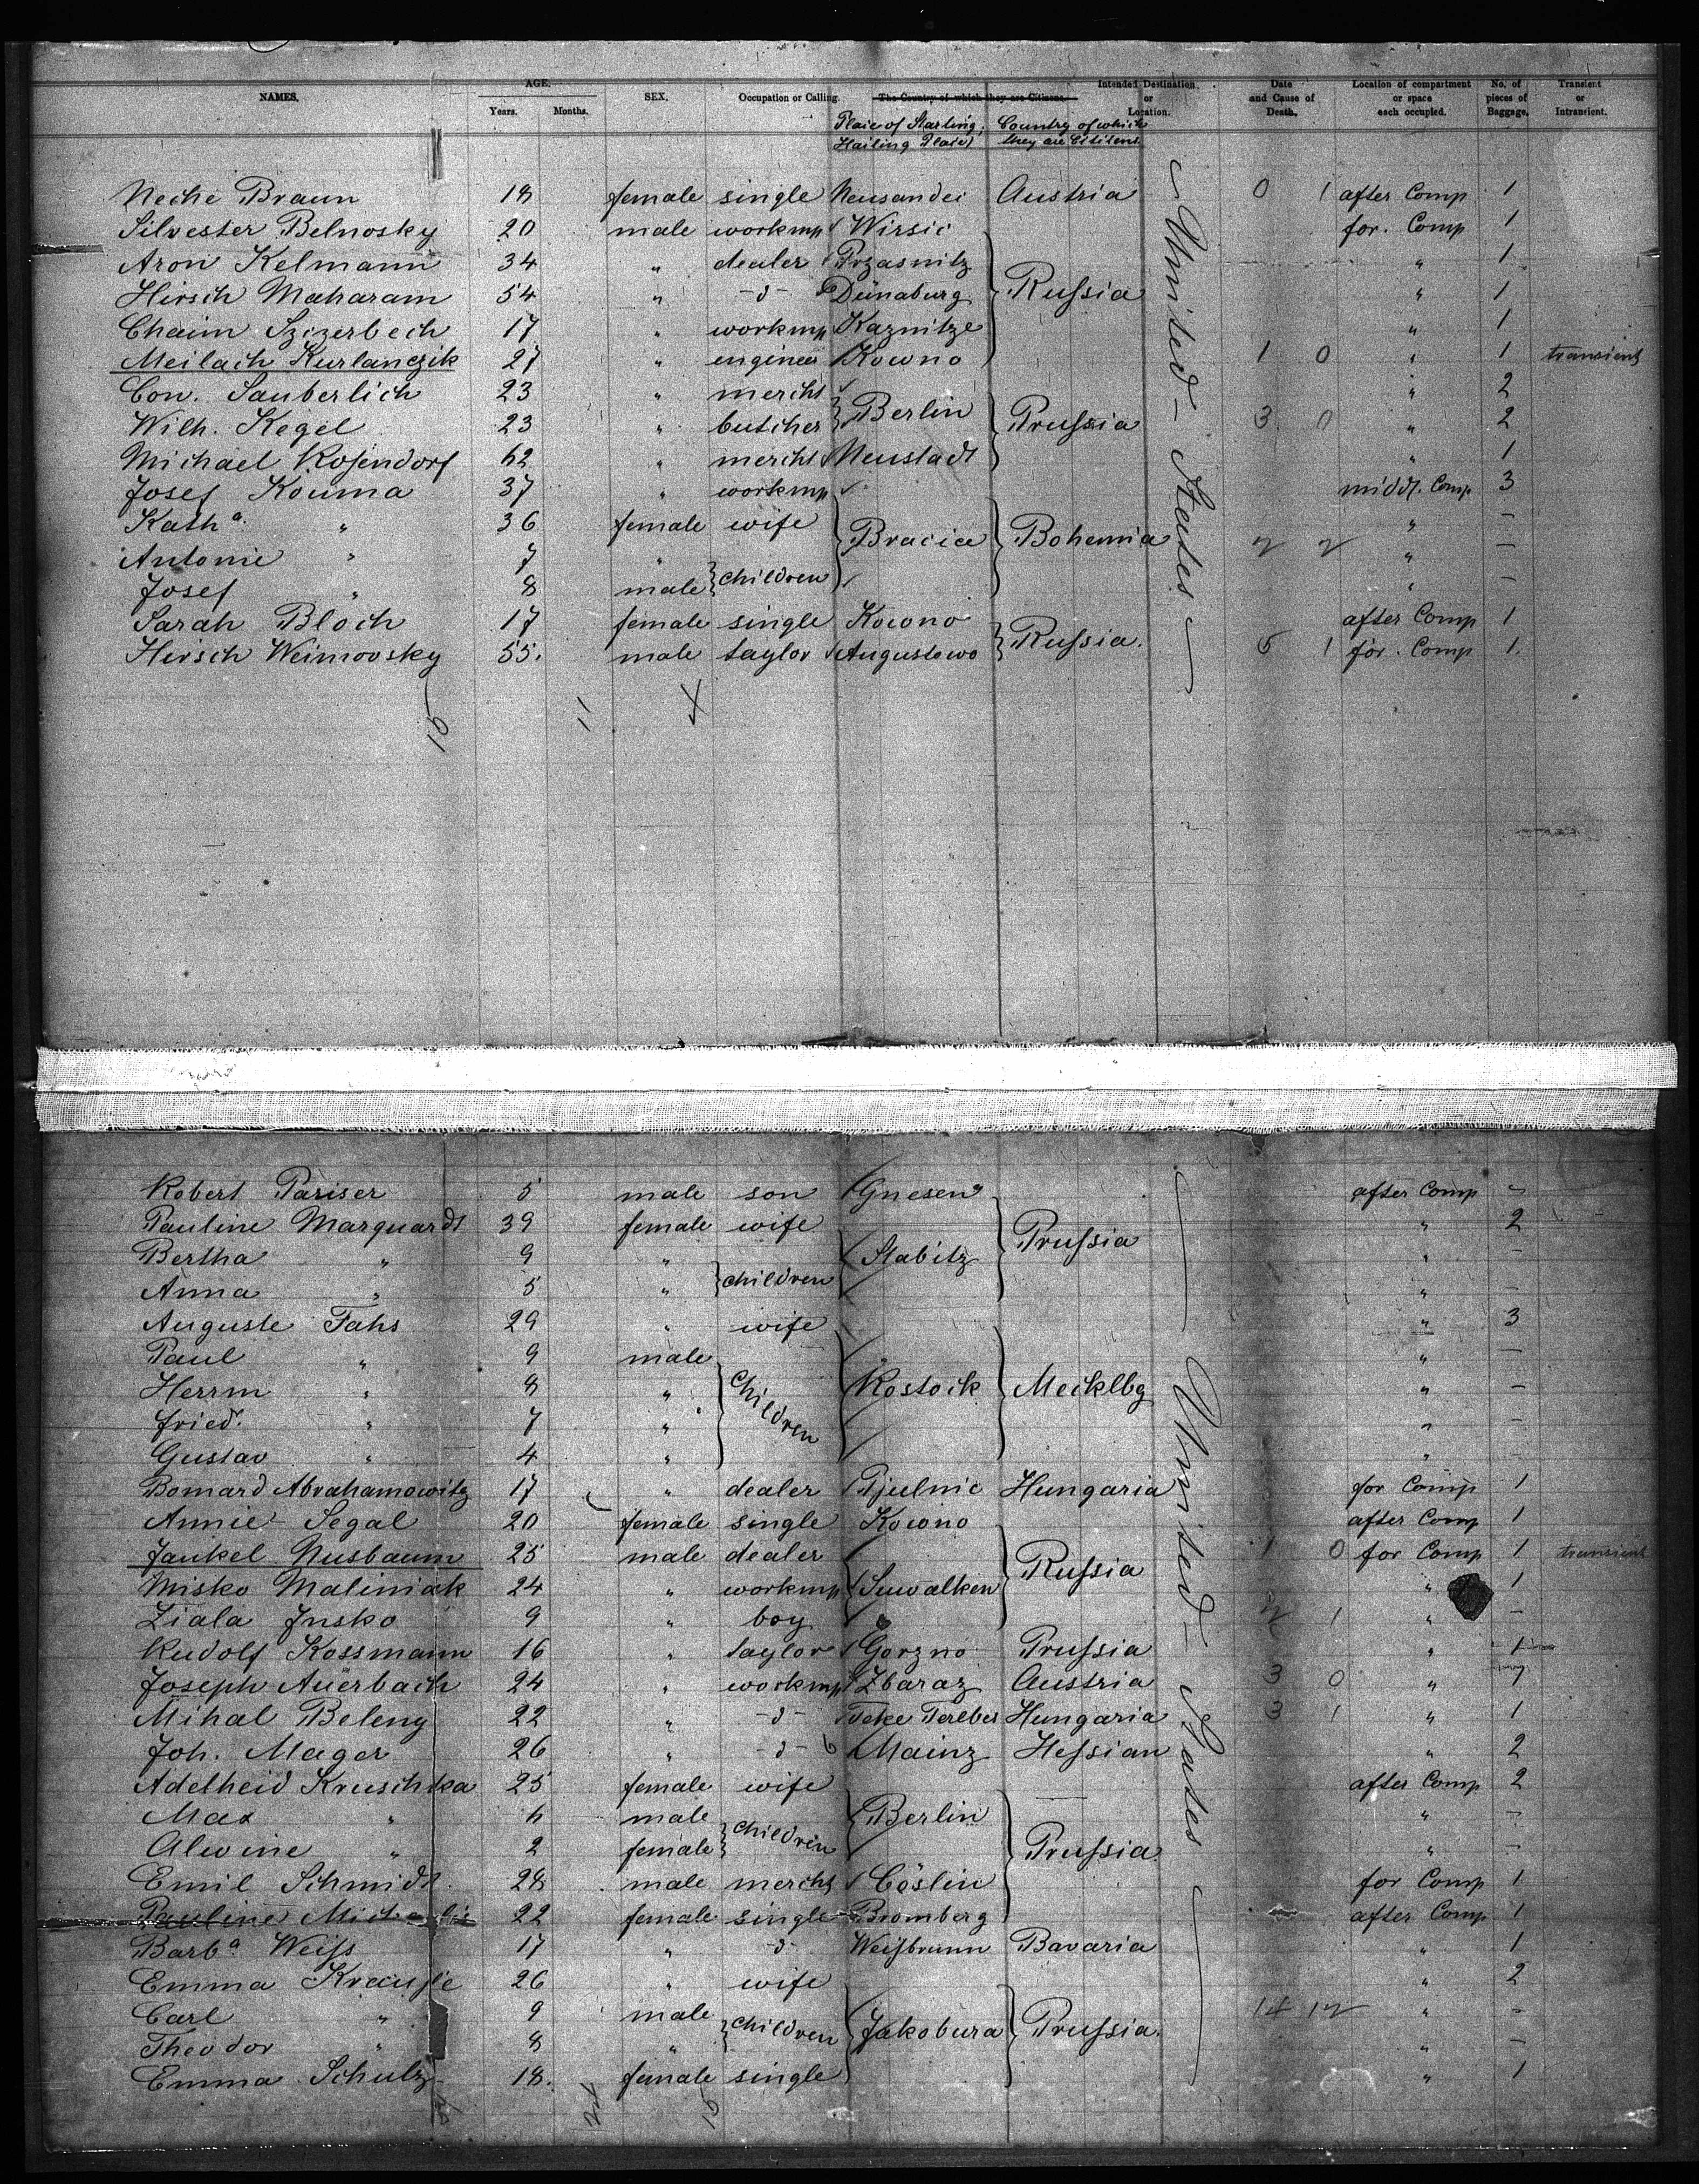 NAMES. AGE. Years. Months. SEX. Occupation or Calling. The Country of which they are Citizens. Intended Destination or Location. Date and Cause of Death. Location of compartment or space each occupied. No. of pieces of Baggage. Transient or Intransient.
Place of Starting, Hailing Place) Country of which they are Citizens
Neche Braun 18 female single Neusandec Austria 0 1 after Comp 1
Silvester Belnosky 20 male workmn Wirsic for. Comp 1
Aron Kelmann 34 " dealer Przasnitz " 1
Hirsch Maharam 54 " -d- Dünaburg Russia " 1
Chaim Szczerbech 17 " workmn Kaznitze " 1
Meilach Kurlanczik 27 " engineer Kowno 1 0 " 1 transient
Con. Sauberlich 23 " mercht " 2
Wilh. Kegel 23 " butcher Berlin Prussia 3 0 " 2
Michael Rosendorf 62 " mercht Neustadt " 1
Josef Kouma 37 " workmn middl. Comp 3
Katha " 36 female wife " –
Antonie " 7 " Bracice Bohemia 2 2 " –
Josef " 8 male children " –
Sarah Bloch 17 female single Kowno after Comp 1
Hirsch Weimovsky 55. male taylor Augustowo Russia. 5 1 for. Comp 1.
United States
15 11 4
Robert Pariser 5 male son Gnesen after Comp –
Pauline Marquardt 39 female wife Prussia " 2
Bertha " 9 " Stabitz " –
Anna " 5 " children " –
Auguste Fahs 29 " wife " 3
Paul " 9 male " –
Herrm " 8 " children Rostock Mecklbg " –
Fried. " 7 " " –
Gustav " 4 " " –
Bernard Abrahamowitz 17 " dealer Pjulnic Hungaria for Comp 1
Annie Segal 20 female single Kowno after Comp 1
Jankel Nusbaum 25 male dealer Russia 1 0 for Comp 1 transient
Misko Maliniak 24 " workmn Suwalken " 1
Ziala Jnsko 9 " boy 2 1 " –
Rudolf Kossmann 16 " taylor Gorzno Prussia " 1
Joseph Auerbach 24 " workmn Zbaraz Austria 3 0 " 1
Mihal Beleny 22 " -d- Teke Terebes Hungaria 3 1 " 1
Joh. Mager 26 " -d- Mainz Hessian " 2
Adelheid Kruschka 25 female wife after Comp 2
Max " 4 male Berlin " –
Alwine " 2 female children Prussia " –
Emil Schmidt 28 male mercht Cöslin for Comp 1
Pauline 22 female single Bromberg after Comp 1
Barba Weiss 17 " -d- Weissbrunn Bavaria " 1
Emma Krause 26 " wife " 2
Carl " 9 male 14 12 " –
Theodor " 8 " children Jakobura Prussia. " –
Emma Schulz 18. female single " 1
United States
24 15